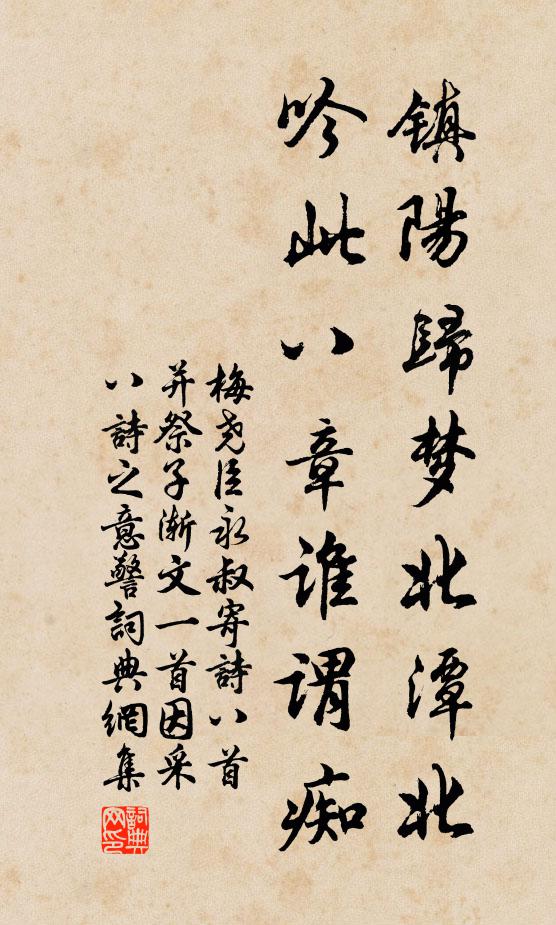 镇陽歸梦北潭北
吟此八章谁謂痴
梅尧臣永叔寄詩八首
并祭子渐文一首因采
八詩之意警詞典網集
詞典网印